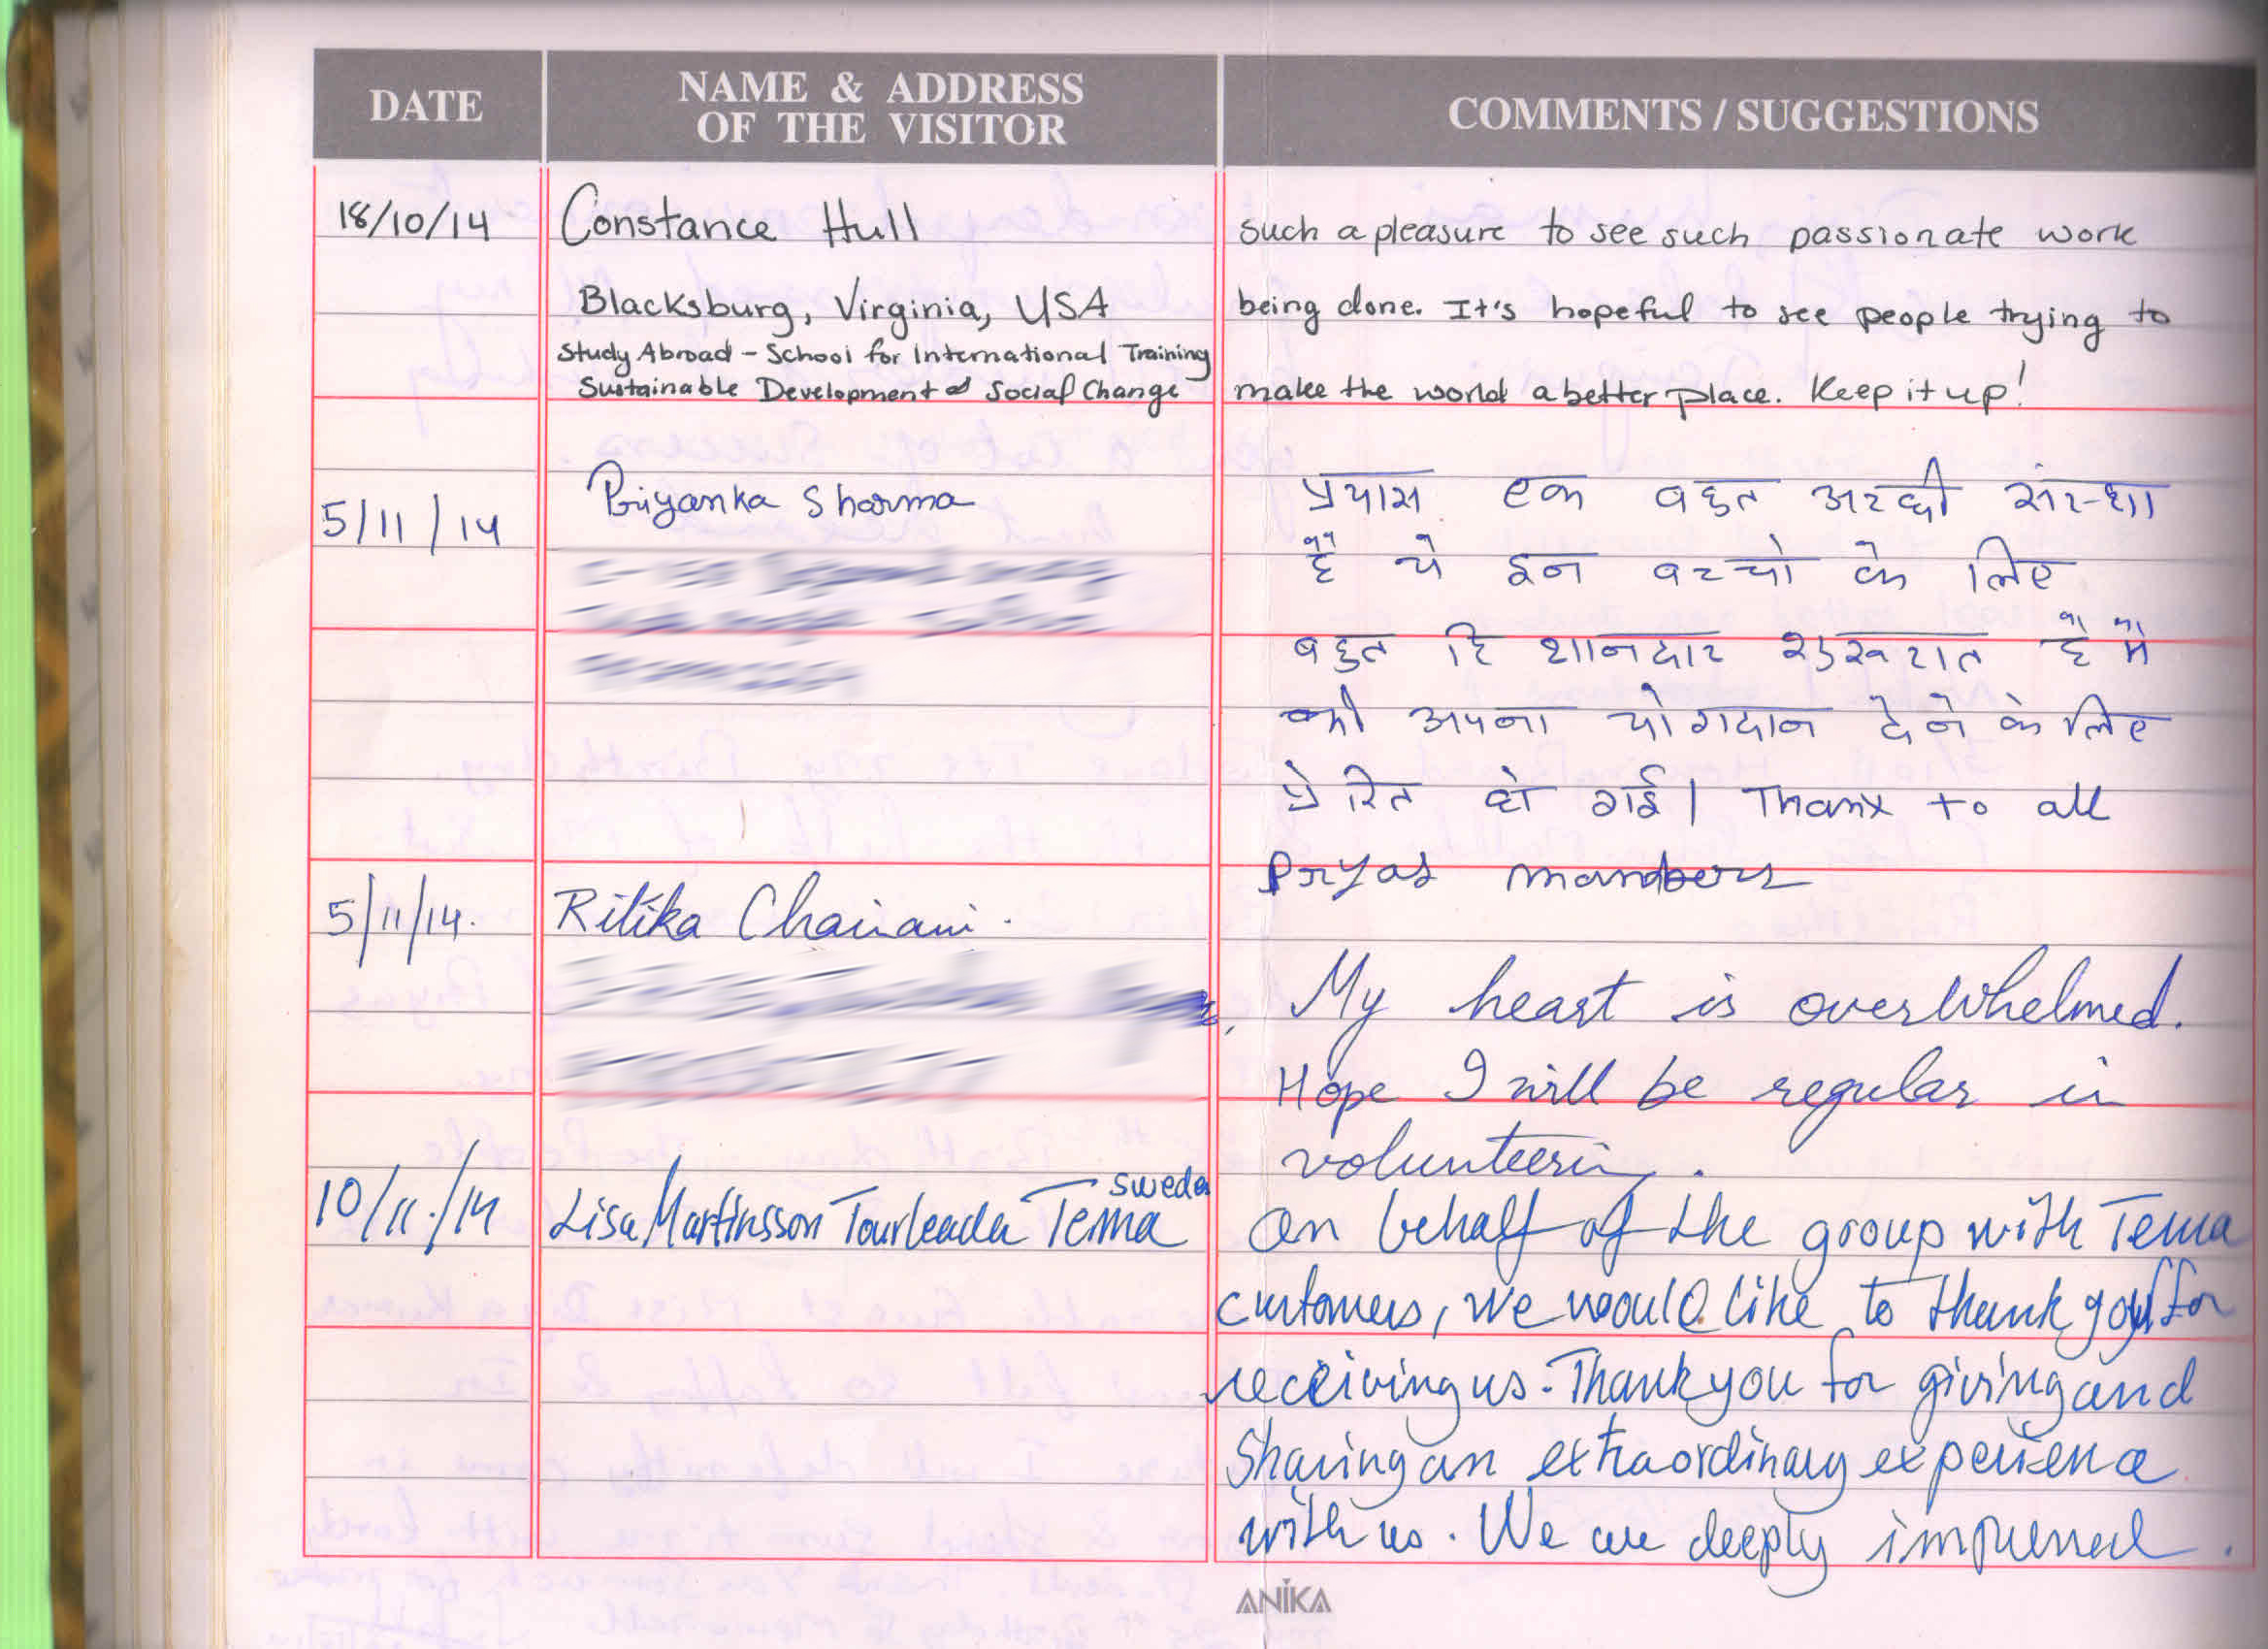 DATE
NAME & ADDRESS
OF THE VISITOR
COMMENTS / SUGGESTIONS
18/10/14
Constance Hull
Blacksburg, Virginia, USA
Study Abroad - School for International Training
Sustainable Development & Social Change
such a pleasure to see such passionate work
being done. It's hopeful to see people trying to
make the world a better place. Keep it up!
5/11/14
Priyanka Sharma
प्रयास एक बहुत अच्छी संस्था
है ये इन बच्चो के लिए
बहुत हि शानदार शुरूरात है मैं
की अपना योगदान देने के लिए
प्रेरित हो गई। Thanx to all
Pryas mambers
5/11/14.
Ritika Chainani.
My heart is overwhelmed.
Hope I will be regular in
volunteering.
10/11/14
Lisa Martinsson Tourleader Tema Sweden
On behalf of the group with Tema
customers, we would like to thank you for
receiving us. Thank you for giving and
sharing an extraordinary experience
with us. We are deeply impressed.
ANIKA